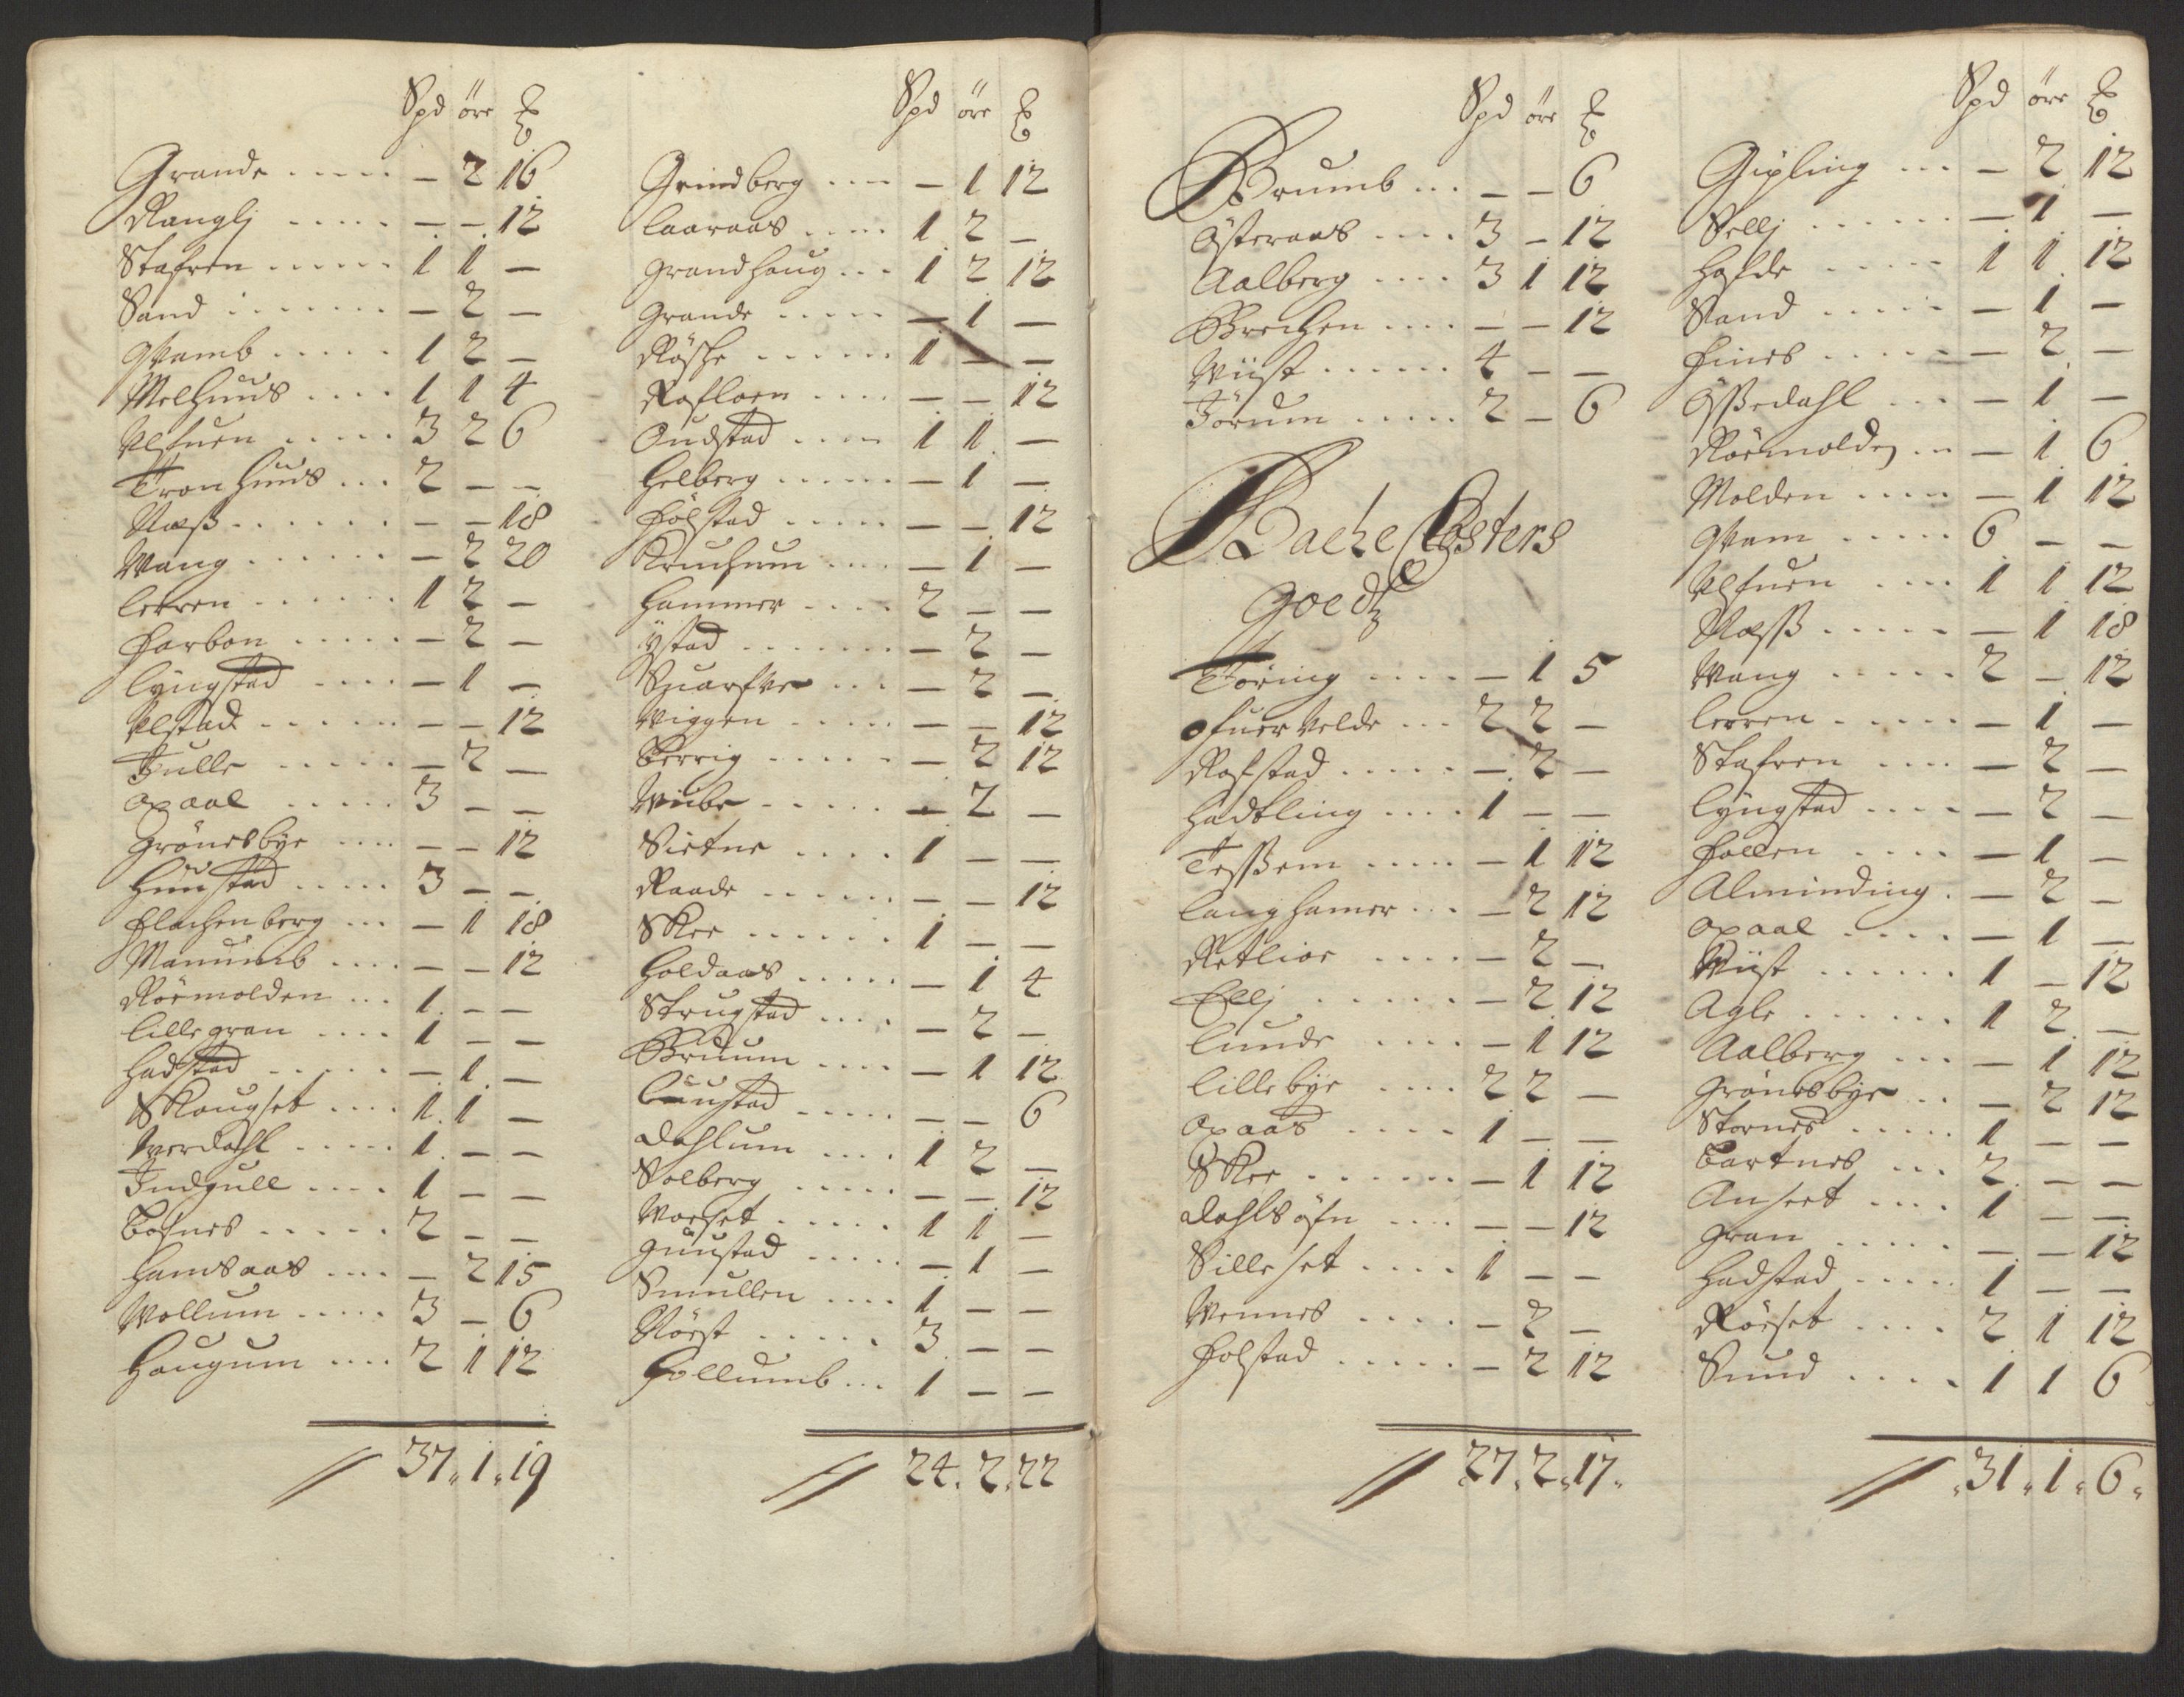 Spd öre
Grande ..... – 2 16
Ranglj ..... – – 12
Stafren ..... 1 1 –
Sand ....... – 2 –
Qvamb ..... 1 2 –
Melhuus .... 1 1 4
Ulfuen ..... 3 2 6
Tronhuus ... 2 – –
Næß ....... – – 18
Wang ...... – 2 20
Leeren ...... 1 2 –
Farbon ..... – 2 –
Lyngstad .... – 1 –
Ulstad ...... – – 12
Julle ..... – 2 –
Opaal ..... 3 – –
Grönesbye .... – – 12
Huustad ..... 3 – –
Flachenberg ... – 1 18
Manumb .... – – 12
Rörmolden ... 1 – –
Lillegran .... 1 – –
Hadstad ..... – 1 –
Skougset .... 1 1 –
Werdahl ..... 1 – –
Indgull .... 1 – –
Bosnes ..... 2 – –
Hambaas .... – 2 15
Wollum ..... 3 – 6
Haugum .... 2 1 12
37. 1. 19
Spd öre
Grindberg .... – 1 12
Laaraas .... 1 2 –
Grandhaug ... 1 2 12
Grande ..... – 1 –
Rösche ...... 1 – –
Rafloen .... – – 12
Oudstad .... 1 1 –
Helberg ..... – 1 –
Fölstad ..... – – 12
Kruchum .... – 1 –
Hammer .... 2 – –
ÿstad ....... – 2 –
Snarfve ... – 2 –
Wiggen ..... – – 12
Berrig ..... – 2 12
Wiibe ..... – 2 –
Sietne .... 1 – –
Raade ...... – – 12
Skee ...... 1 – –
Holdaas ..... – 1 4
Strugstad ... – 2 –
Bruum .... – 1 12
Luustad ..... – – 6
Dahlum .... 1 2 –
Solberg ..... – – 12
Worset ..... 1 1 –
Guustad .... – 1 –
Smullen .... 1 – –
Nöest ..... 3 – –
Hollumb ... 1 – –
24. 2. 22
Spd öre
Brumb ... – – 6
Österaas .... 3 – 12
Aalberg .... 3 1 12
Brechen .... – – 12
Wiist ...... 4 – –
Jörum ..... 2 – 6
Bache Closters
Goedtz
Töring .... – 1 5
Ofuervelde ... 2 2 –
Rafstad ..... – 2 –
Hadbling .... 1 – –
Tessem ..... – 1 12
Langhamer ... – 2 12
Retlior .... – 2 –
Ellj ...... – 2 12
Lunde .... – 1 12
Lillebye .... 2 2 –
Opaas .... 1 – –
Skee ...... – 1 12
Dahlsösn .... – – 12
Silleset .... 1 – –
Wennes .... – 2 –
Holstad ..... – 2 12
27. 2. 17.
Spd öre
Gipling ... – 2 12
Sellj ...... – 1 –
Hafde ..... 1 1 12
Sand ..... – 1 –
Fines ..... – 2 –
Össedahl ... – 1 –
Rörmolden ... – 1 6
Molden .... – 1 12
Qvam ..... 6 – –
Ulfuen .... 1 1 12
Næss ..... – 1 18
Wang ..... 2 – 12
Leeren ..... – 1 –
Stafren .... – 2 –
Lyngstad .... – 2 –
Hallen .... – 1 –
Alminding . – 2 –
Opaal .... – 1 –
Wiist ...... 1 – 12
Agle ...... 1 2 –
Aalberg ... – 1 12
Grönesbye .. – 2 12
Stornes ..... 1 – –
Bartnes ... 2 – –
Anseet .... 1 – –
Gran ..... – – 12
Hadstad .... 1 – –
Röeset .... 2 1 12
Sund .... 1 1 6
31. 1. 6.